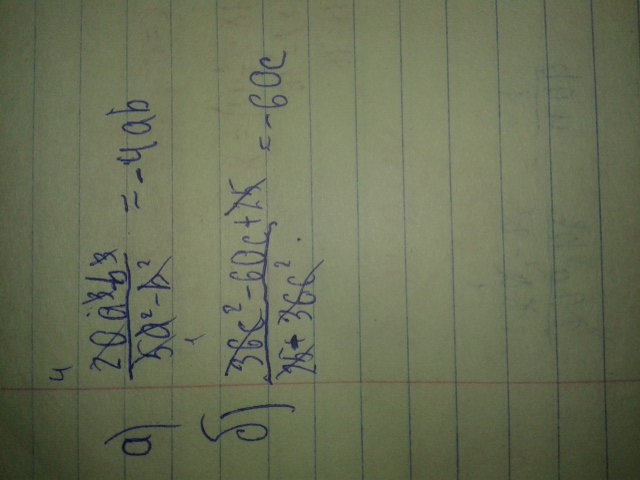 4
а) 20a³b³ / 5a² - b² = -4ab
1
б) 36c² - 60c + 25 / 25 + 36c² = -60c